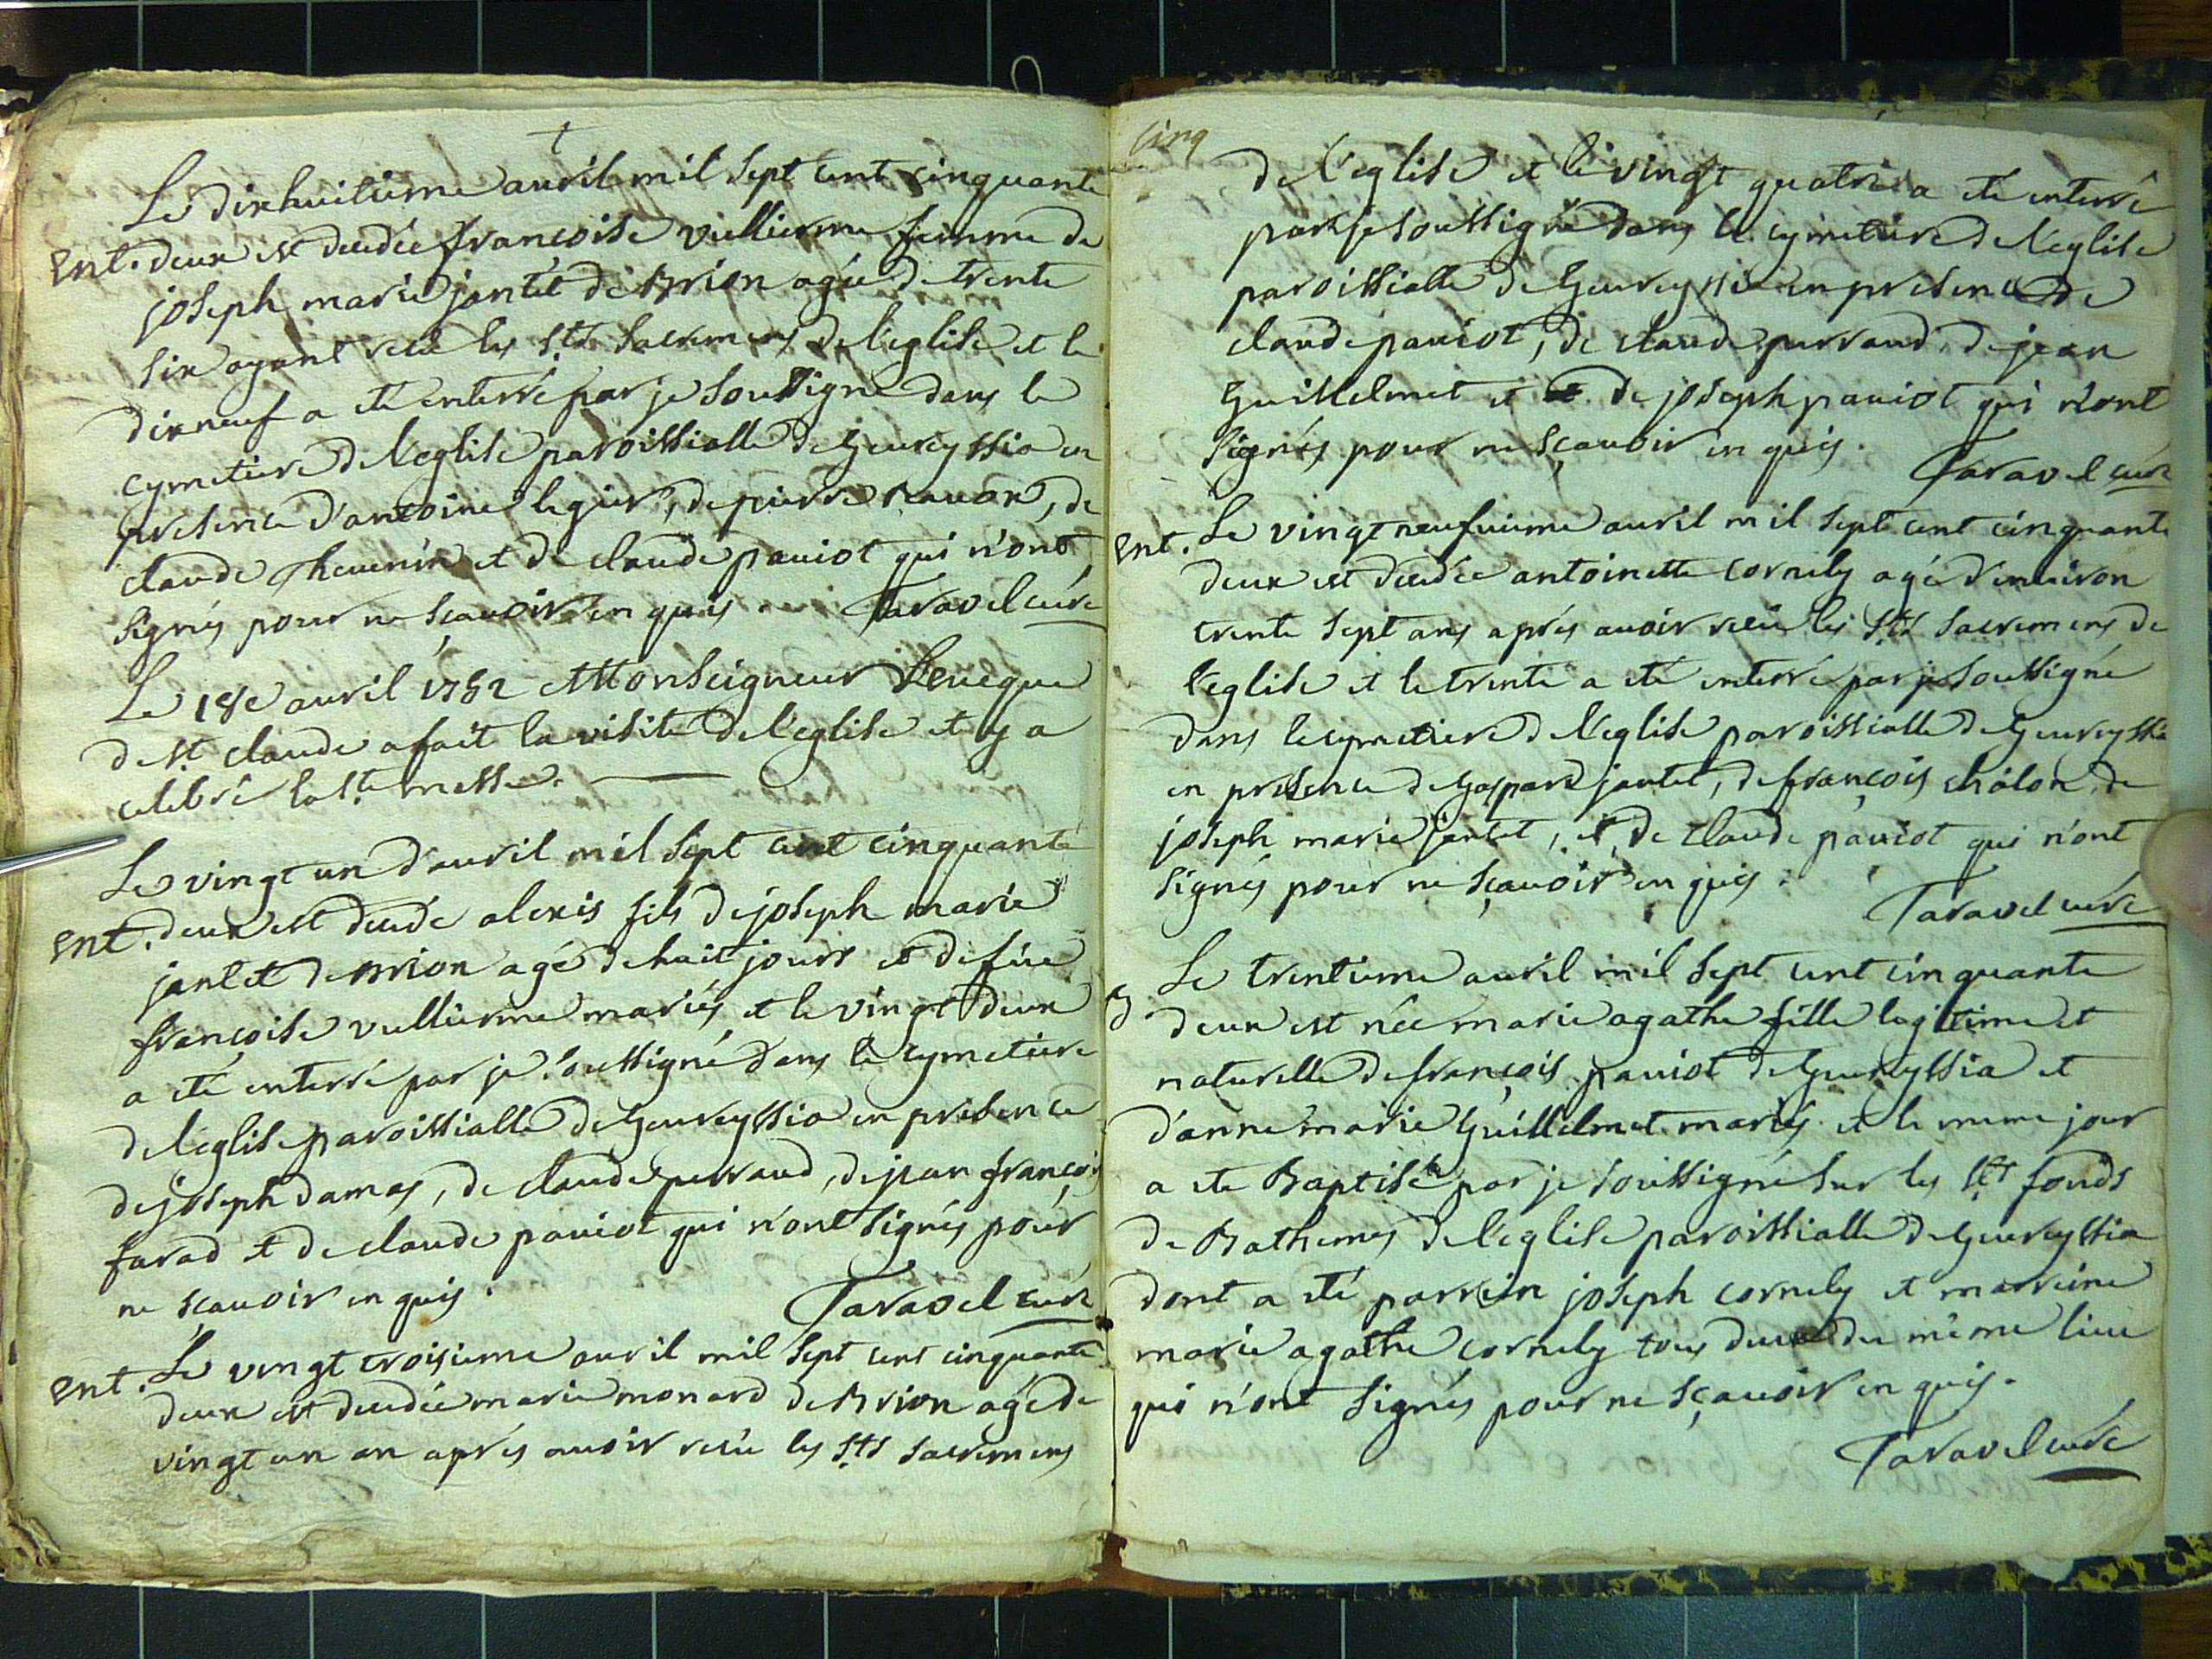 †
Le dixhuitieme auril mil sept cent cinquante
Ent. deux est decedée francoise vuillierme femme de
joseph marie jantet de Brion agée de trente
six ayant reçu les Sts sacremens de l'eglise et le
dixneuf a eté enterré par je soussigné dans le
cymetiere de l'eglise paroissialle de Geureyssia en
presence d'antoine legier, de pierre, de
claude Theuenin et de claude pauiot qui n'ont
signés pour ne sçauoir en quis. Taravel curé
Le 18e auril 1752 Monseigneur Leueque
de st claude a fait la visite de l'eglise et y a
celebré la ste messe.
Le vingt un d'auril mil sept cent cinquante
Ent. deux est decedé alexis fils de joseph marie
jantet de Brion agé de huit jours et de fûe
françoise vuillierme mariés et le vingt deux
a eté enterré par je soussigné dans le cymetiere
de l'eglise paroissialle de Geureyssia en presence
de joseph damas, de claude perraud, de jean françois
farad et de claude pauiot qui n'ont signés pour
ne sçauoir en quis.
Taravel curé
Ent. Le vingt troisieme auril mil sept cent cinquante
deux est decedée marie monard de Brion agé de
vingt un an aprés auoir reçu les Sts sacremens
cinq
de l'eglise et le vingt quatre a eté enterré
par je soussigné dans le cymetiere de l'eglise
paroissialle de Geureyssia en presence de
claude pauiot, de claude perraud, de jean
Guillelmet et de joseph pauiot qui n'ont
signés pour ne sçauoir en quis.
Taravel curé
Ent. Le vingt neufuieme auril mil sept cent cinquante
deux est decedée antoinette cornely agé d'enuiron
trente sept ans aprés auoir reçu les Sts sacremens de
l'eglise et le trente a eté enterré par je soussigné
dans le cymetiere de l'eglise paroissialle de Geureyssia
en presence de Gaspard jantet, de françois chalon, de
joseph marie jantet, et de claude pauiot qui n'ont
signés pour ne sçauoir en quis.
Taravel curé
Le trentieme auril mil sept cent cinquante
B deux est née marie agathe fille legitime et
naturelle de françois pauiot de Geureyssia et
d'anne marie Guillelmet mariés et le meme jour
a ete Baptisé par je soussigné sur les Sts fonds
de Bathemes de l'eglise paroissialle de Geureyssia
dont a eté parrein joseph cornely et marreine
marie agathe cornely tous deux du même lieu
qui n'ont signés pour ne sçauoir en quis.
Taravel curé